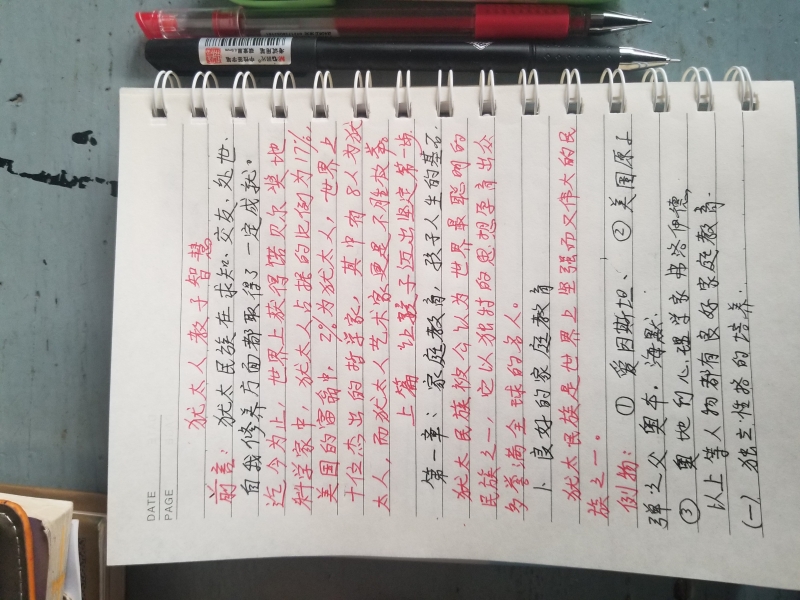 DATE
PAGE
犹太人教子智慧
前言：犹太民族在求知、交友、处世、
自我修养方面都取得了一定成就。
迄今为止，世界上获得诺贝尔奖地
科学家中，犹太人占据的比例为17%，
美国的富翁中，20%为犹太人，世界上
十位杰出的哲学家，其中有8人为犹
太人，而犹太人艺术家更是不胜枚举。
上篇 让孩子迈出坚定第一步
第一章：家庭教育，孩子人生的基石
犹太民族被公认为世界最聪明的
民族之一，它以独特的思想孕育出众
多誉满全球的名人。
1、良好的家庭教育
犹太民族是世界上坚强而又伟大的民
族之一。
例物：① 爱因斯坦、② 美国原子
弹之父奥本，海默.
③ 奥地利心理学家弗洛伊德，
以上等人物都有良好家庭教育.
(一) 独立性格的培养.